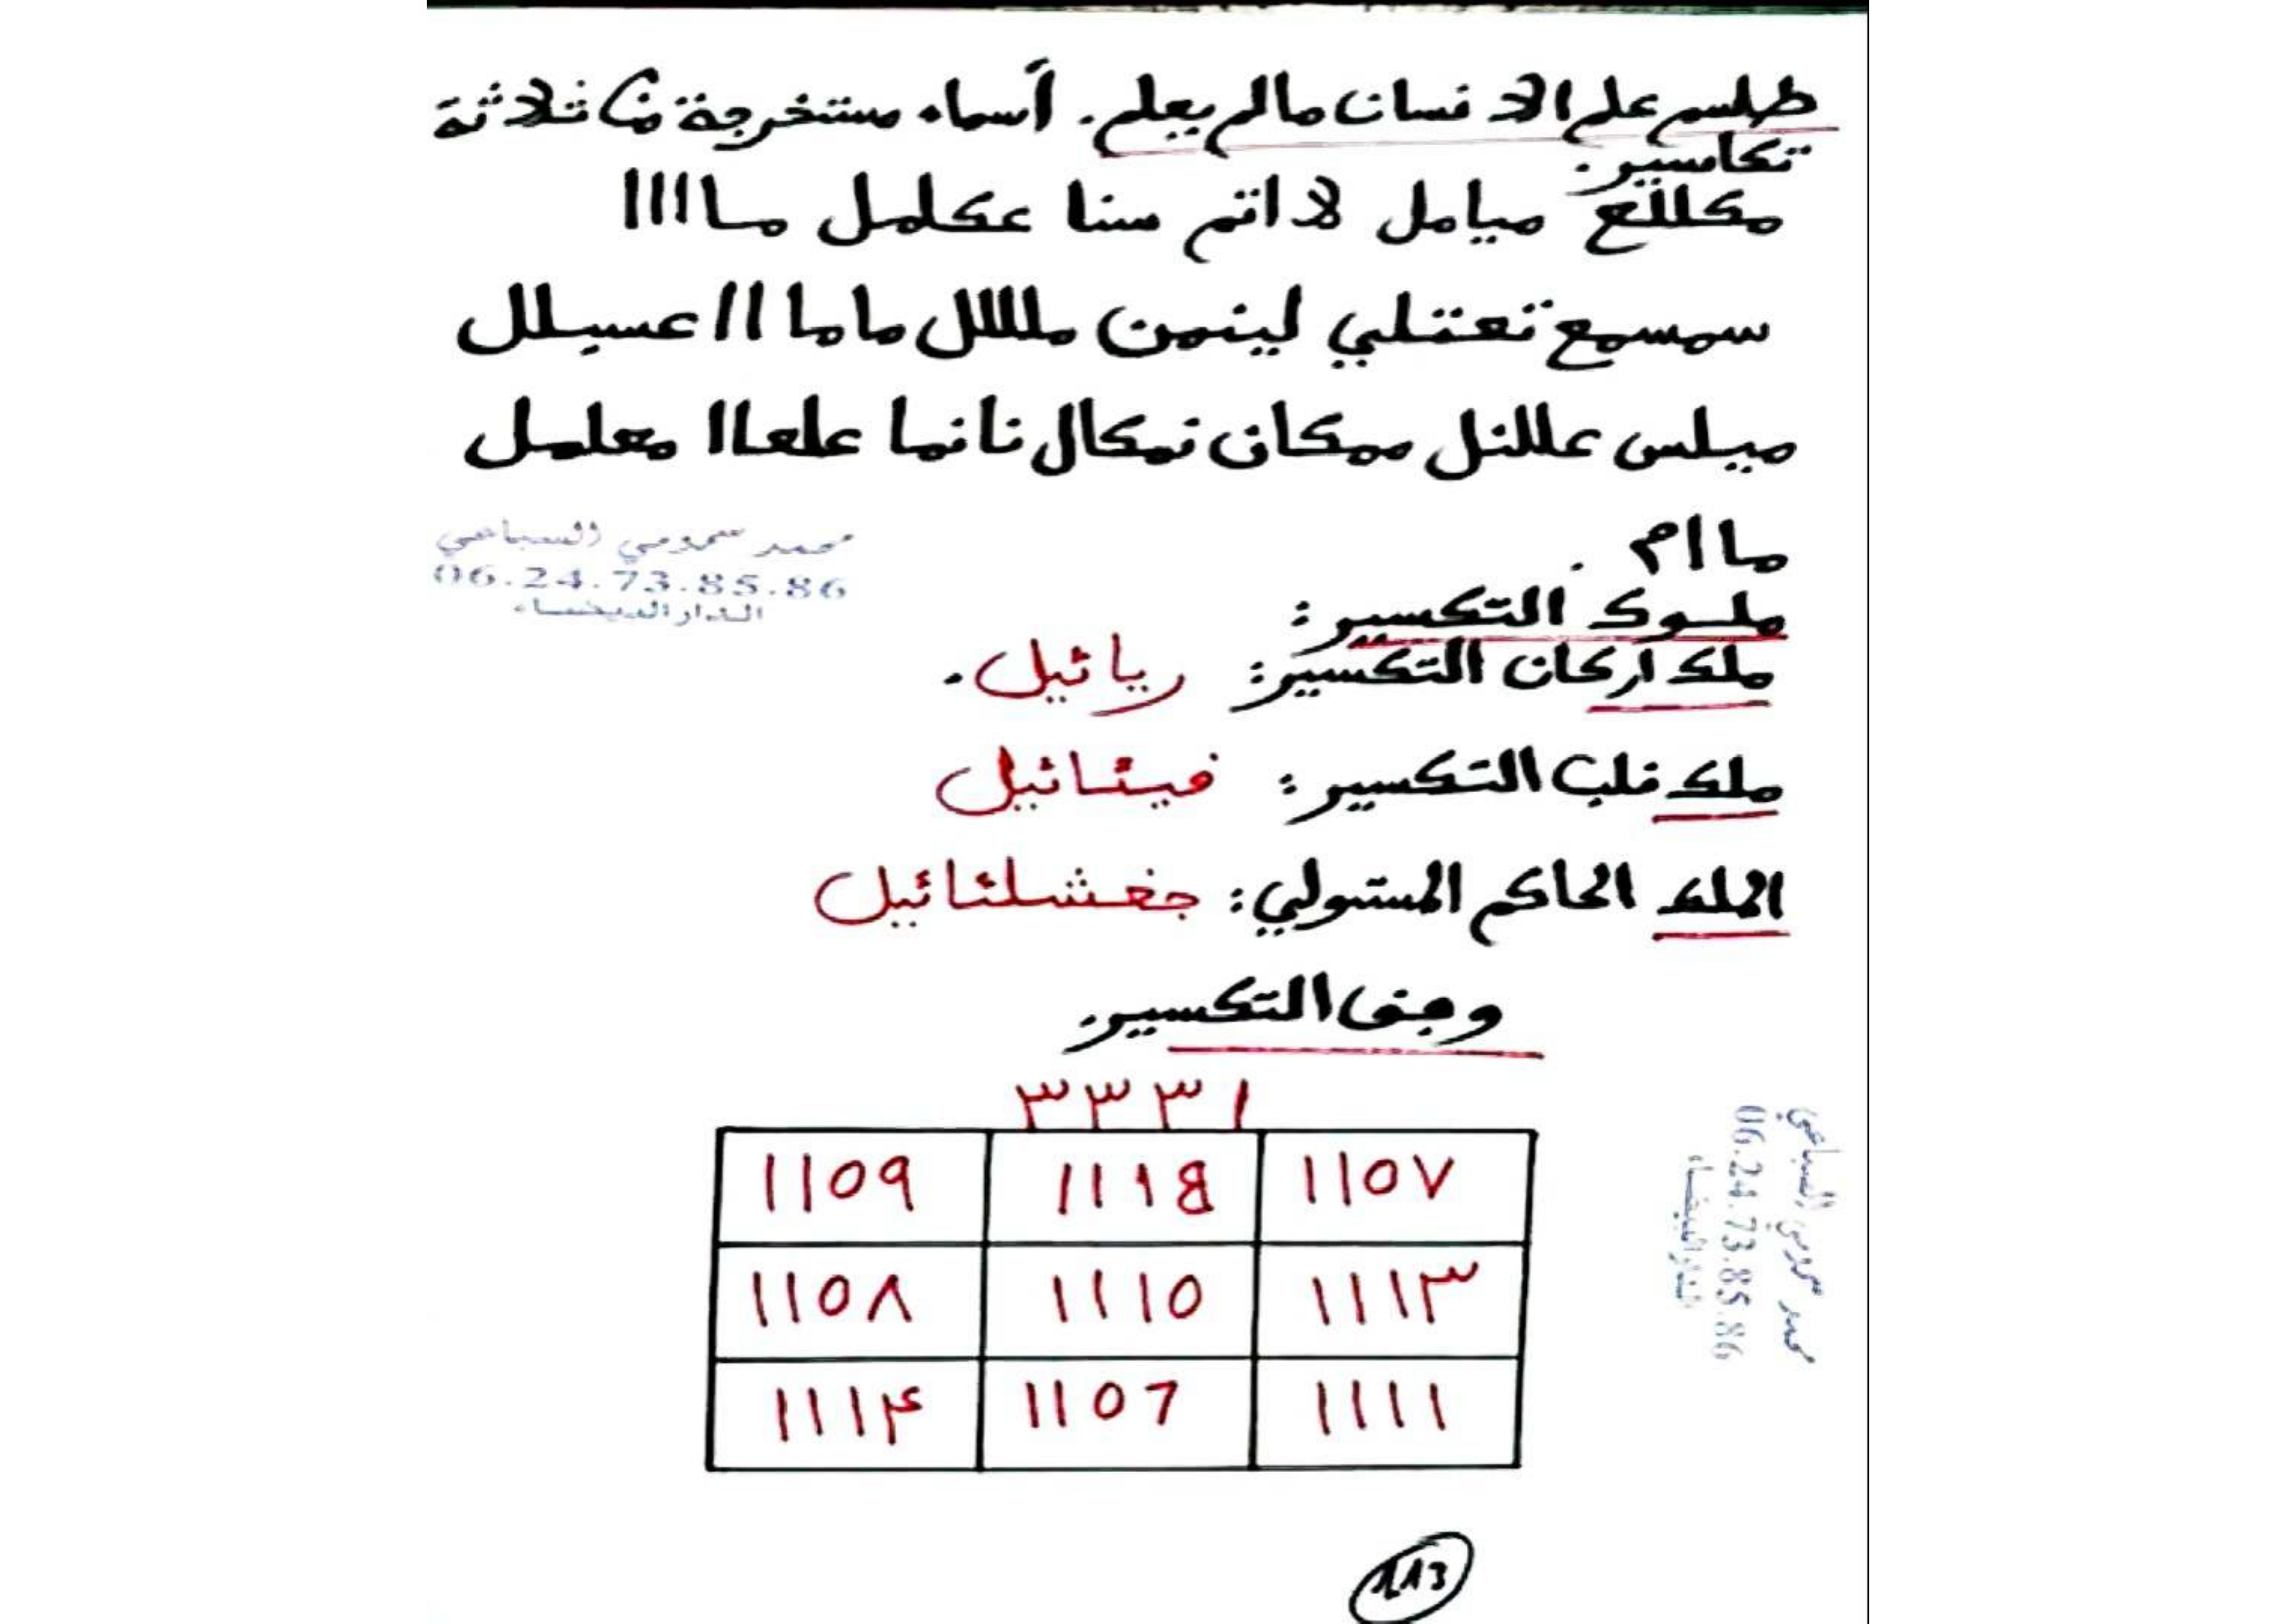 طلسم علم الانسان مالم يعلم. أسماء مستخرجة من ثلاثة
تكاسير.
مكللع ميامل لااتم سنا عكلمل مـااا
سمسمع تعتلي لينمن مللللل ماما اا عسيلل
ميلس عللنل ممكان نمكال نانما علعاا معلمل
ما ام .
محمد سحومي السباعي
06.24.73.85.86
الدار البيضاء
ملوك التكسير:
ملك اركان التكسير: ريائيل.
ملك قلب التكسير: فيثائيل
الملك الحاكم المستولي: جغشلثائيل
وفق التكسير.
٣٣٣١
١١٥٩ ١١١٥ ١١٥٧
١١٥٨ ١١١٥ ١١١٣
١١١٤ ١١٥٦ ١١١١
محمد سحومي السباعي
06.24.73.85.86
الدار البيضاء
113